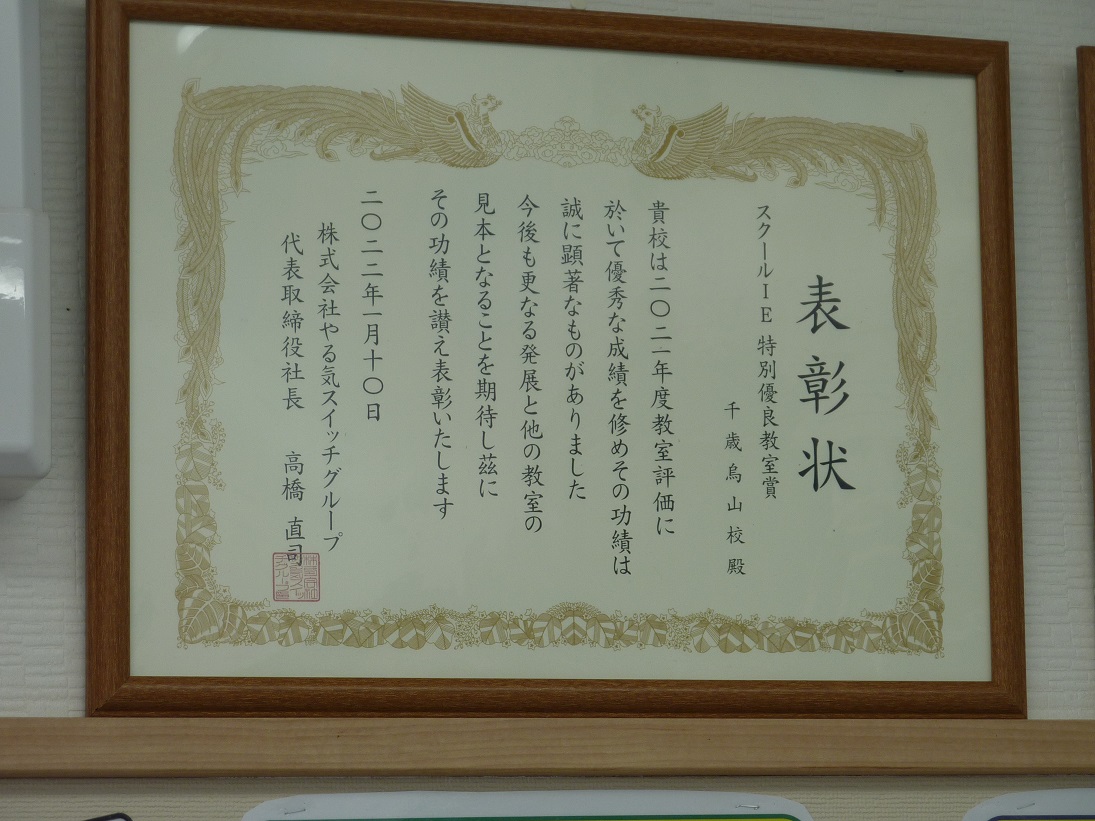 表彰状
スクールIE 特別優良教室賞
千歳烏山校殿
貴校は二〇二一年度教室評価に
於いて優秀な成績を修めその功績は
誠に顕著なものがありました
今後も更なる発展と他の教室の
見本となることを期待し茲に
その功績を讃え表彰いたします
二〇二二年一月十〇日
株式会社やる気スイッチグループ
代表取締役社長 高橋 直司